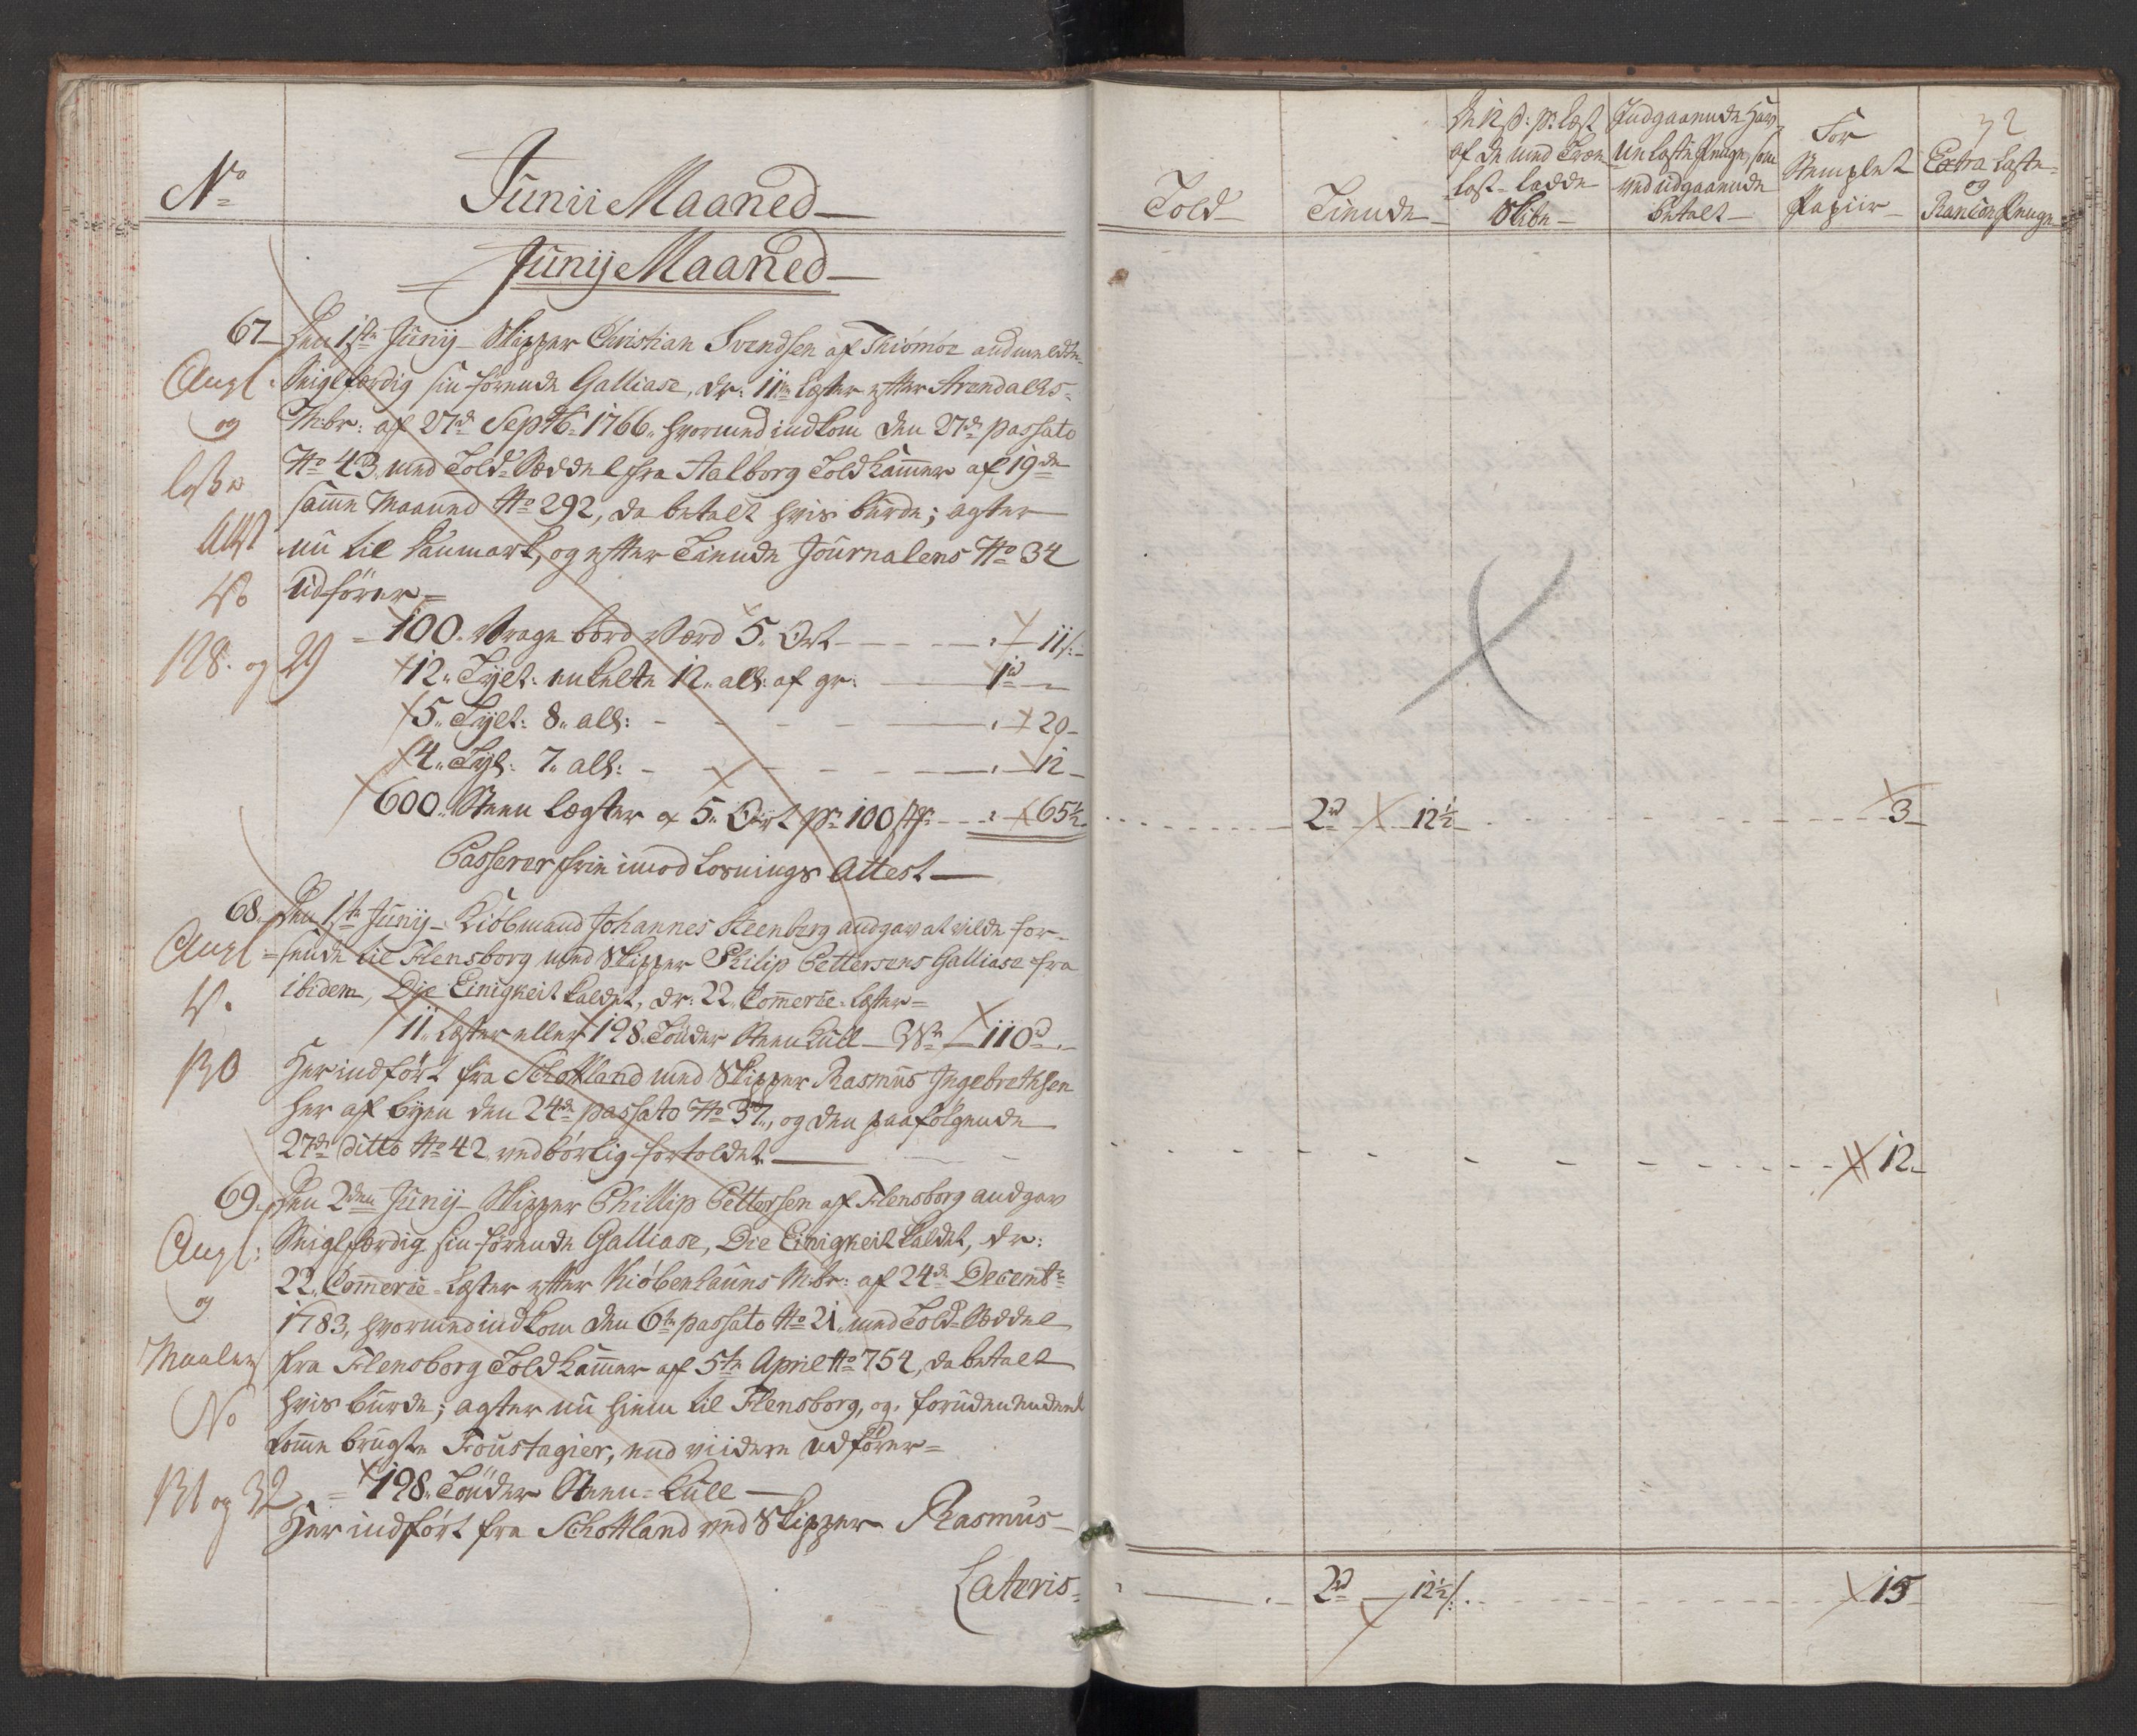 No
Junii Maaned
Junij Maaned
67. Den 1ste Junij Skipper Christian Svendsen af Thiömöe andmeldte
Angl: Seiglfærdig sin förende Galliase, dr: 11 læster efter Arendahls
og M:br: af 27de Septb: 1766, hvormed indkom den 27de passato
No 43, med Told-Seddel fra Aalborg Toldkammer af 19de
samme Maaned No 292, da betalt hvis burde; agter
Att nu til Danmark, og efter Tiende Journalens No 34
No udförer
100 Vrage bord Værd 5 Ort - 11 ß
128 og 29
12 Tylt: enkelte 12 all: af gr: 1 rd
5 Tylt: 8 all: - 29
4 Tyl: 7 all: - 12
600 Steen lægter a 5 Ort pr 100 st: - 65½
Passerer frie imod Losnings Attest
68. Den 1ste Junij Kiöbmand Johannes Steenberg andgav at vilde for-
Angl: sende til Flensborg med Skipper Philip Pettersens Galliase fra
No ibidem, Die Einigkeit kaldet, dr: 22 Commerce-Læster
11 Læster eller 198 Tönder Steen Kull - Wr 110 rd
130 Her indfört fra Schottland med Skipper Rasmus Ingebrethsen
her af byen den 24de passato No 37, og den paafölgende
27de ditto No 42 vedbörlig fortoldet
69. Den 2den Junij Skipper Phillip Pettersen af Flensborg andgav
Angl: Seiglfærdig sin förende Galliase, Die Einigkeit kaldet, dr:
og 22 Commerce-Læster efter Kiöbenhauns M:br: af 24de Decembr
1783, hvormed indkom den 6te passato No 21 med Told-Seddel
Maaler fra Flensborg Toldkammer af 5te April No 754, da betalt
No hvis burde; agter nu hiem til Flensborg, og foruden ind-
komme brugte Foustagier, end viidere udförer
131 og 32 198 Tönder Steen-Kull
Her indfört fra Schottland ved Skipper Rasmus
Lateris
Told
Tiende
De 12 ß: pr Læst af de med Træ last-ladde Skibe
Indgaaende Havne Læste Penge, som ved udgaaende betalt
For Stemplet Papiir
32
Extra Læste og Rancon Penge
2 rd 12½ 3
12
2 rd 12½ ß 15